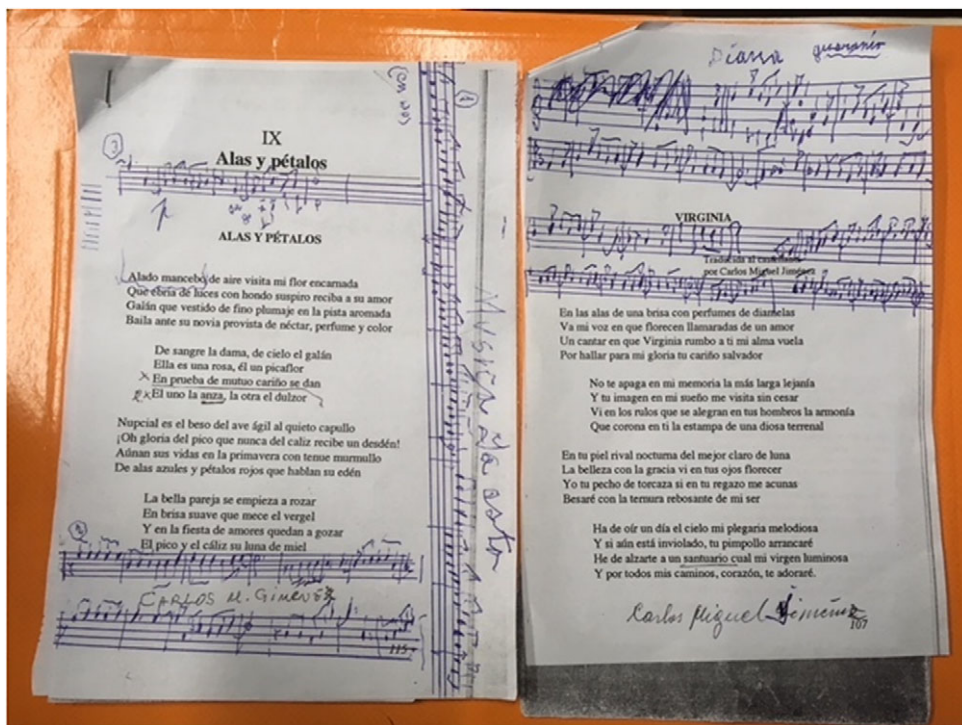 IX
Alas y pétalos
ALAS Y PÉTALOS
Alado mancebo de aire visita mi flor encarnada
Que ebria de luces con hondo suspiro reciba a su amor
Galán que vestido de fino plumaje en la pista aromada
Baila ante su novia provista de néctar, perfume y color
De sangre la dama, de cielo el galán
Ella es una rosa, él un picaflor
En prueba de mutuo cariño se dan
El uno la anza, la otra el dulzor
Nupcial es el beso del ave ágil al quieto capullo
¡Oh gloria del pico que nunca del caliz recibe un desdén!
Aúnan sus vidas en la primavera con tenue murmullo
De alas azules y pétalos rojos que hablan su edén
La bella pareja se empieza a rozar
En brisa suave que mece el vergel
Y en la fiesta de amores quedan a gozar
El pico y el cáliz su luna de miel
CARLOS M. GIMENEZ
115
Musica
Diana
VIRGINIA
Traducida al castellano
por Carlos Miguel Jiménez
En las alas de una brisa con perfumes de diamelas
Va mi voz en que florecen llamaradas de un amor
Un cantar en que Virginia rumbo a ti mi alma vuela
Por hallar para mi gloria tu cariño salvador
No te apaga en mi memoria la más larga lejanía
Y tu imagen en mi sueño me visita sin cesar
Vi en los rulos que se alegran en tus hombros la armonía
Que corona en ti la estampa de una diosa terrenal
En tu piel rival nocturna del mejor claro de luna
La belleza con la gracia vi en tus ojos florecer
Yo tu pecho de torcaza si en tu regazo me acunas
Besaré con la ternura rebosante de mi ser
Ha de oír un día el cielo mi plegaria melodiosa
Y si aún está inviolado, tu pimpollo arrancaré
He de alzarte a un santuario cual mi virgen luminosa
Y por todos mis caminos, corazón, te adoraré.
Carlos Miguel Jimenez
107